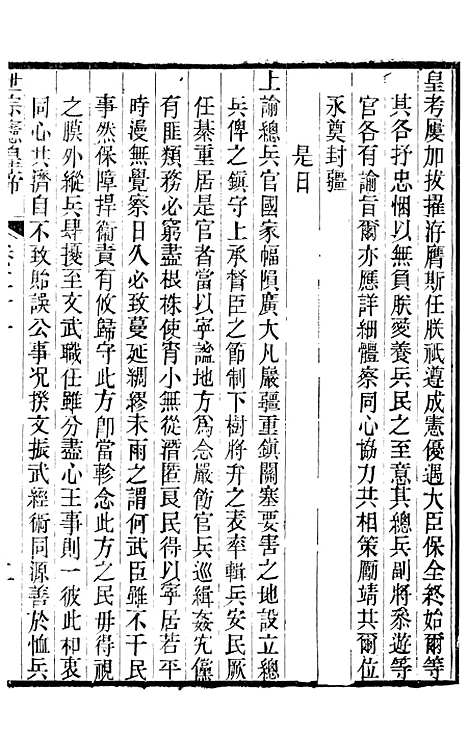 皇考屢加拔擢洊膺斯任朕祇遵成憲優遇大臣保全終始爾等
其各抒忠悃以無負朕愛養兵民之至意其總兵副將叅遊等
官各有諭旨爾亦應詳細體察同心協力共相策勵靖共爾位
永奠封疆
是日
上諭總兵官國家幅隕廣大凡嚴疆重鎮關塞要害之地設立總
兵俾之鎮守上承督臣之節制下樹將弁之表率輯兵安民厥
任綦重居是官者當以寧謐地方為念嚴飭官兵巡緝姦宄儻
有匪類務必窮盡根株使宵小無從潛匿良民得以寧居若平
時漫無覺察日久必致蔓延綢繆未雨之謂何武臣雖不干民
事然保障捍衞責有攸歸守此一方卽當軫念此一方之民毋得視
之膜外縱兵肆擾至文武職任雖分盡心王事則一彼此和衷
同心共濟自不致貽誤公事況揆文振武經術同源善於恤兵
世宗憲皇帝